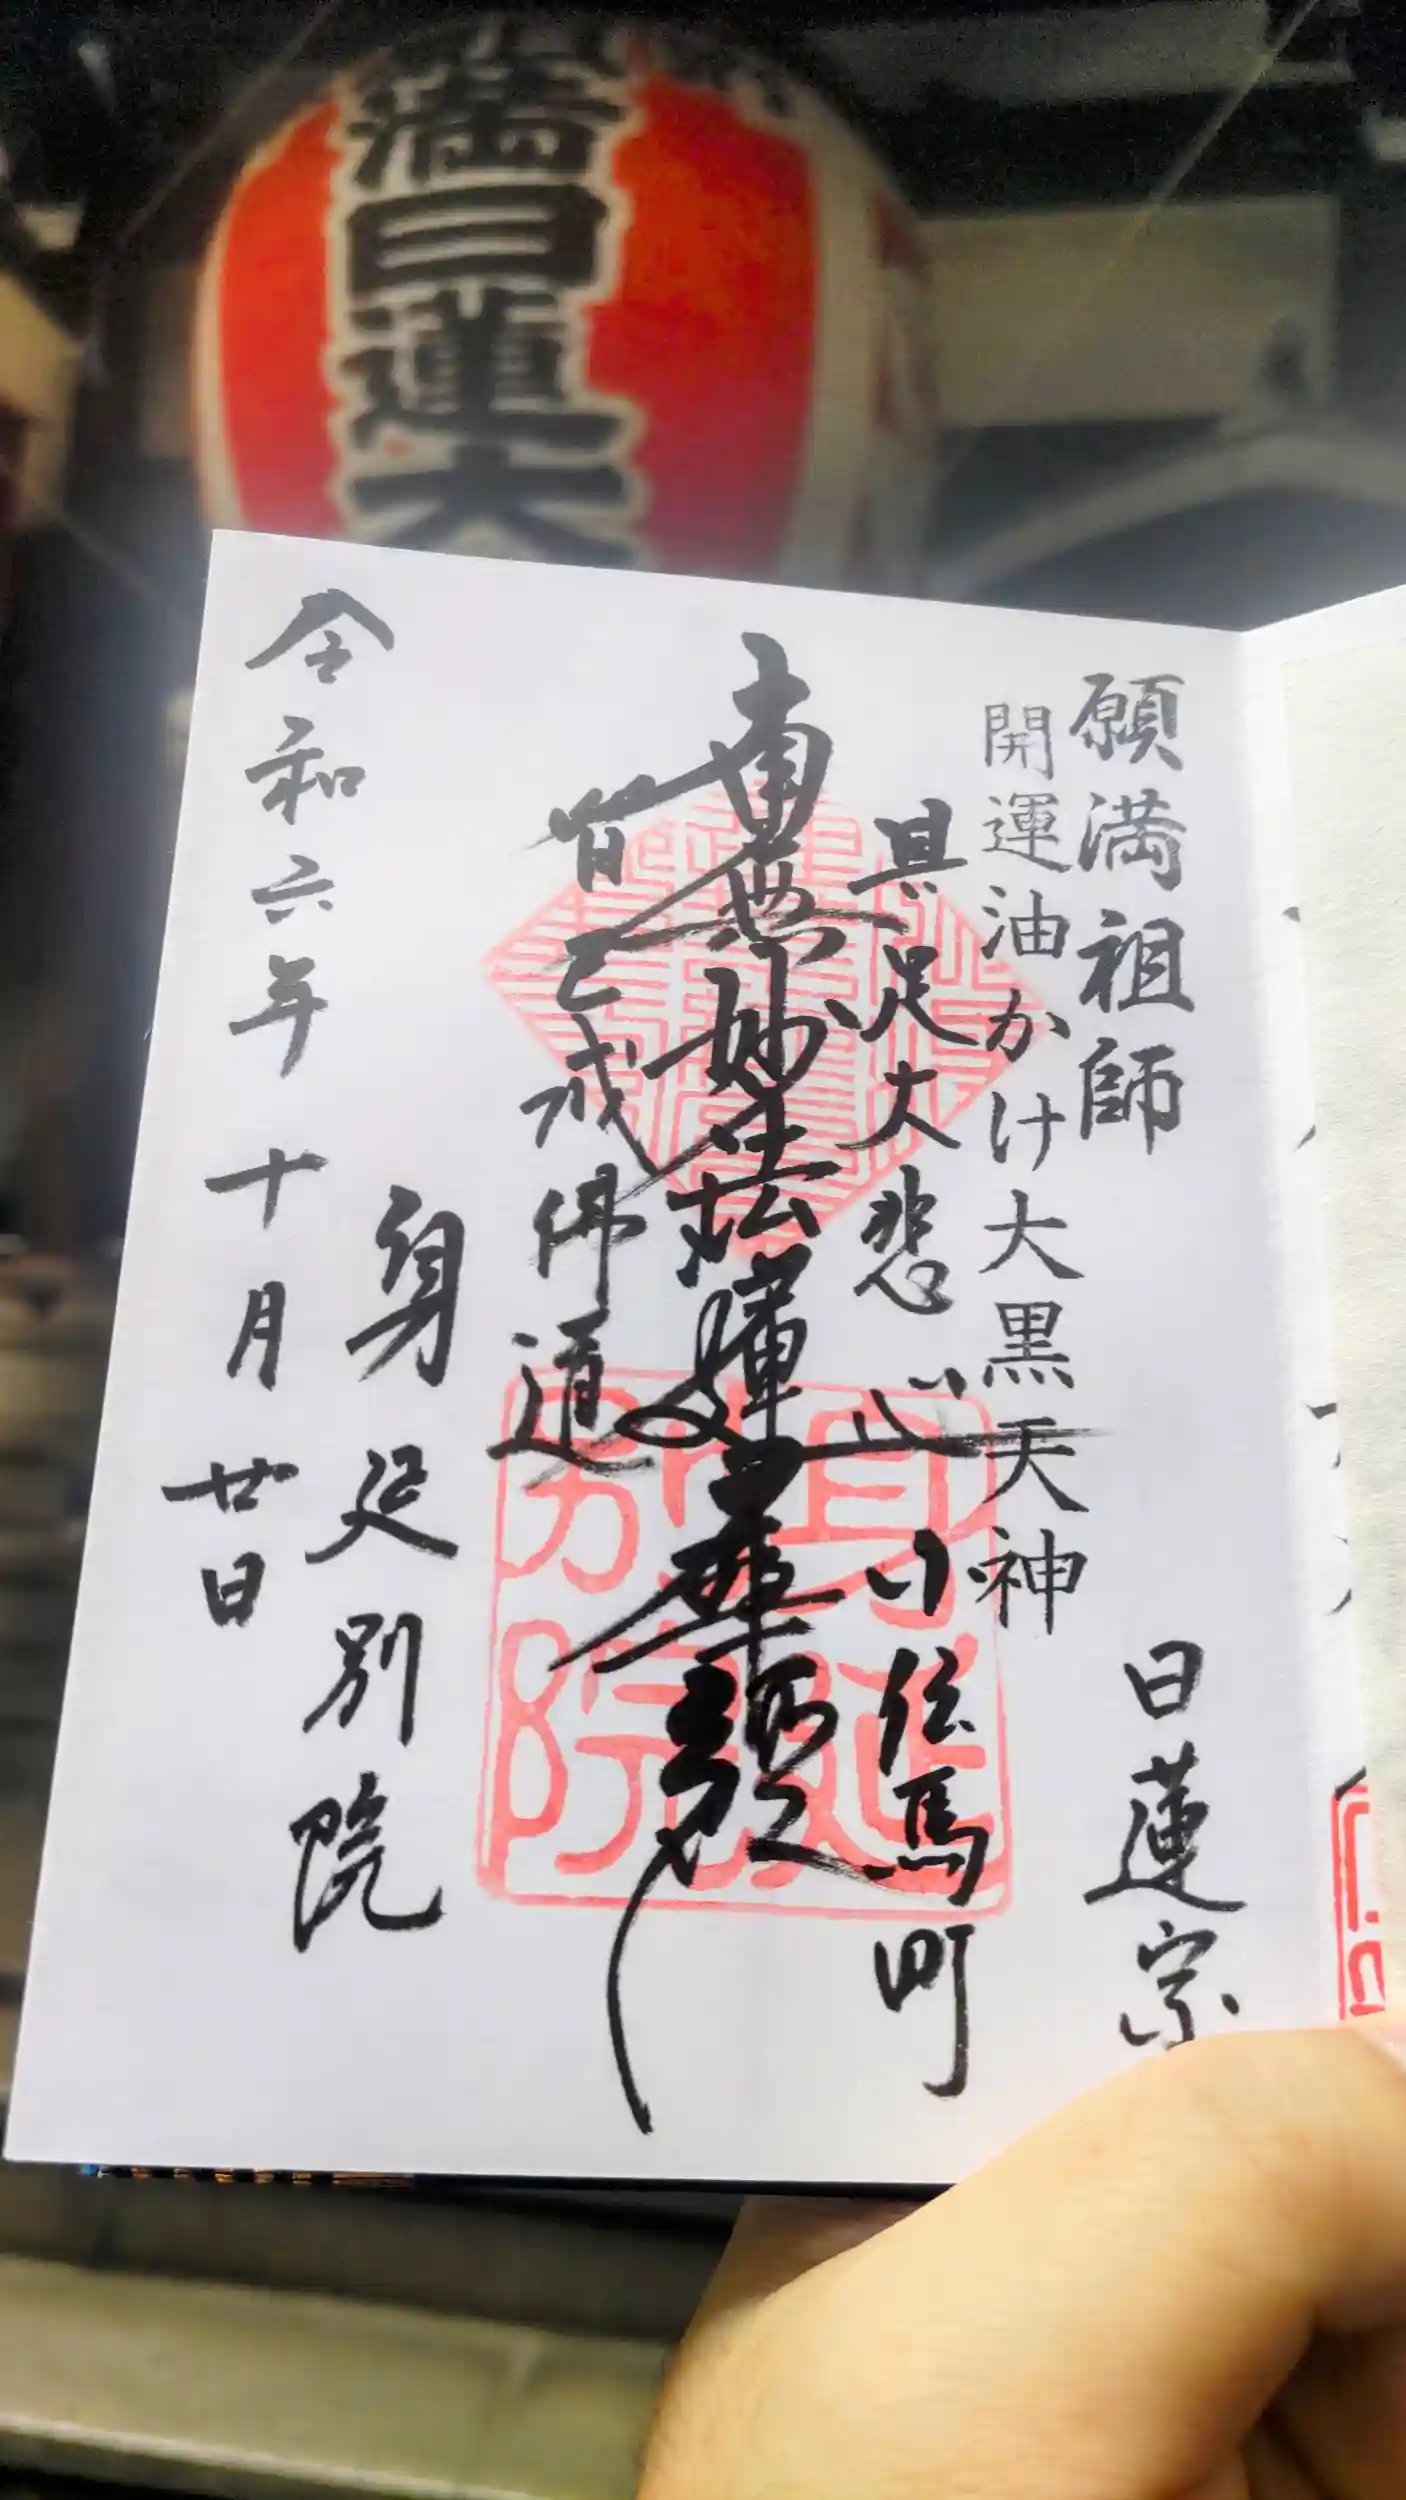 満日蓮大
願満祖師
開運油かけ大黒天神
日蓮宗
具足大悲心
小伝馬町
南無妙法蓮華経
皆已成佛道
身延別院
令和六年十月廿日
身延
別院